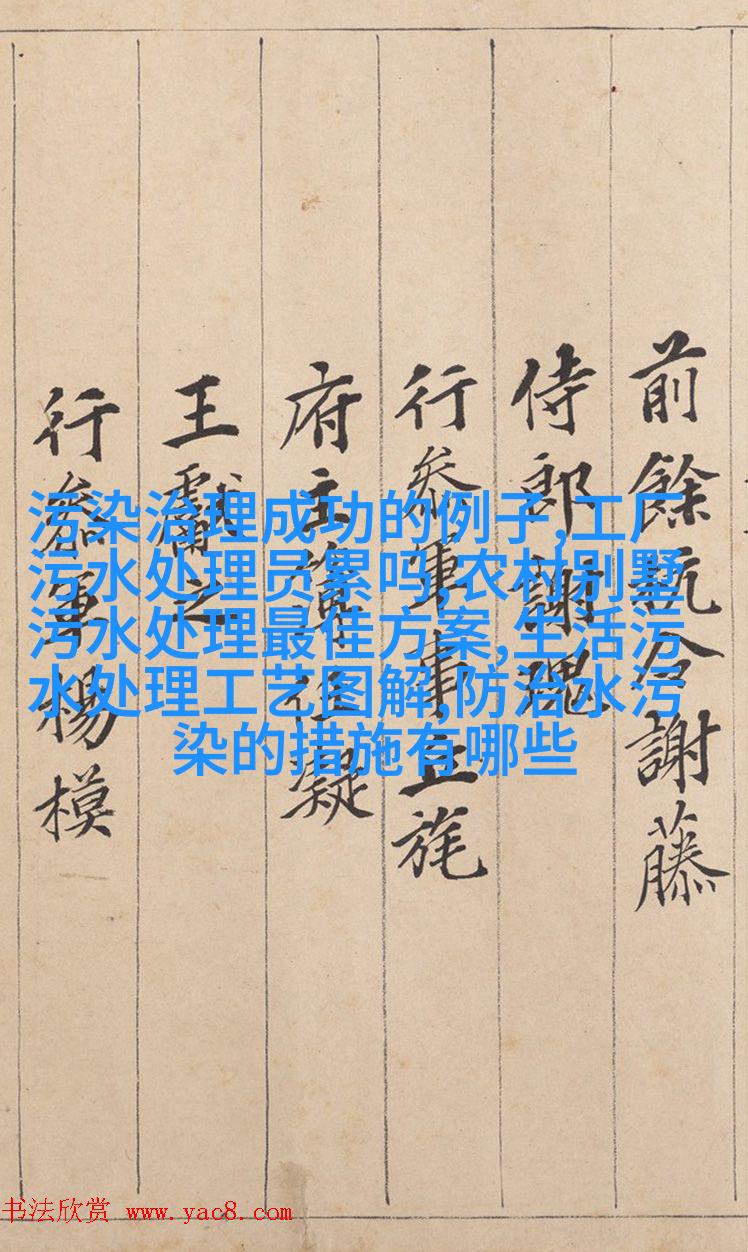 前餘杭令謝藤
侍郎謝瑰
行叅軍事丘旄
府主簿任凝
王獻之
行叅軍楊模
污染治理成功的例子,工厂
污水处理员累吗,农村别墅
污水处理最佳方案,生活污
水处理工艺图解,防治水污
染的措施有哪些
书法欣赏 www.yac8.com